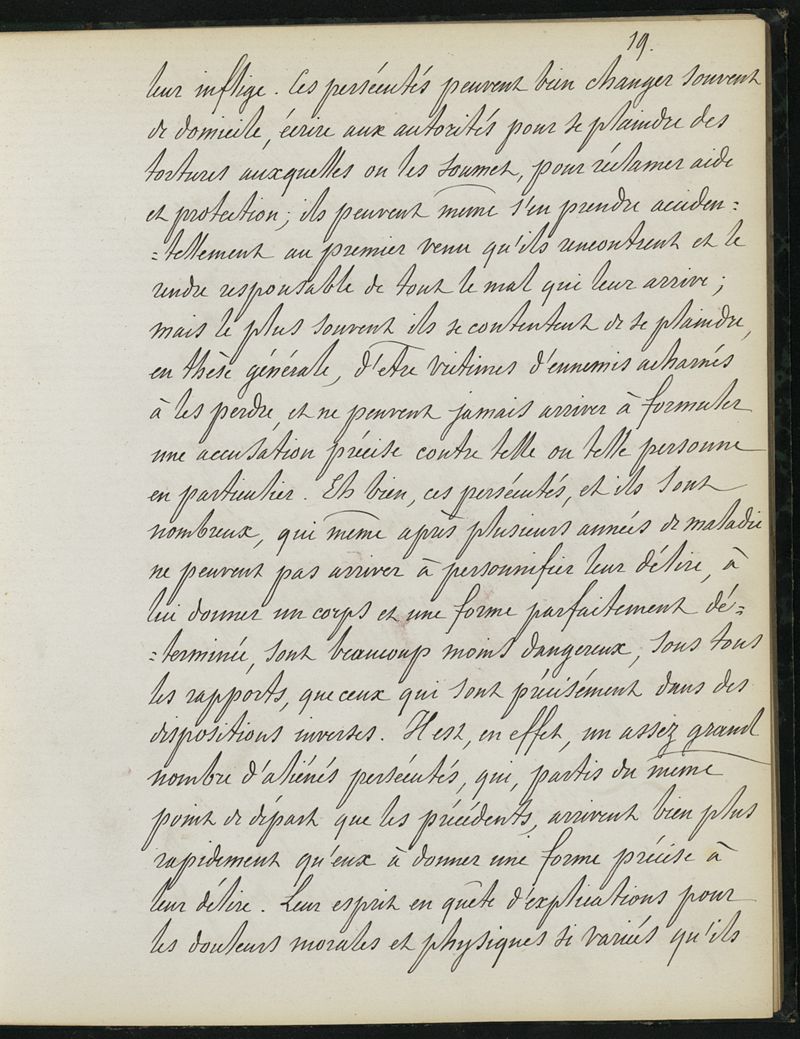 19.
leur inflige. Ces persécutés peuvent bien changer souvent
de domicile, écrire aux autorités pour se plaindre des
tortures auxquelles on les soumet, pour réclamer aide
et protection; ils peuvent même s'en prendre acciden=
=tellement au premier venu qu'ils rencontrent et le
rendre responsable de tout le mal qui leur arrive;
mais le plus souvent ils se contentent de se plaindre,
en thèse générale, d'être victimes d'ennemis acharnés
à les perdre, et ne peuvent jamais arriver à formuler
une accusation précise contre telle ou telle personne
en particulier. Eh bien, ces persécutés, et ils sont
nombreux, qui même après plusieurs années de maladie
ne peuvent pas arriver à personnifier leur délire, à
lui donner un corps et une forme parfaitement dé=
=terminée, sont beaucoup moins dangereux, sous tous
les rapports, que ceux qui sont précisément dans des
dispositions inverses. Il est, en effet, un assez grand
nombre d'aliénés persécutés, qui, partis du même
point de départ que les précédents, arrivent bien plus
rapidement qu'eux à donner une forme précise à
leur délire. Leur esprit en quête d'explications pour
les douleurs morales et physiques si variés qu'ils